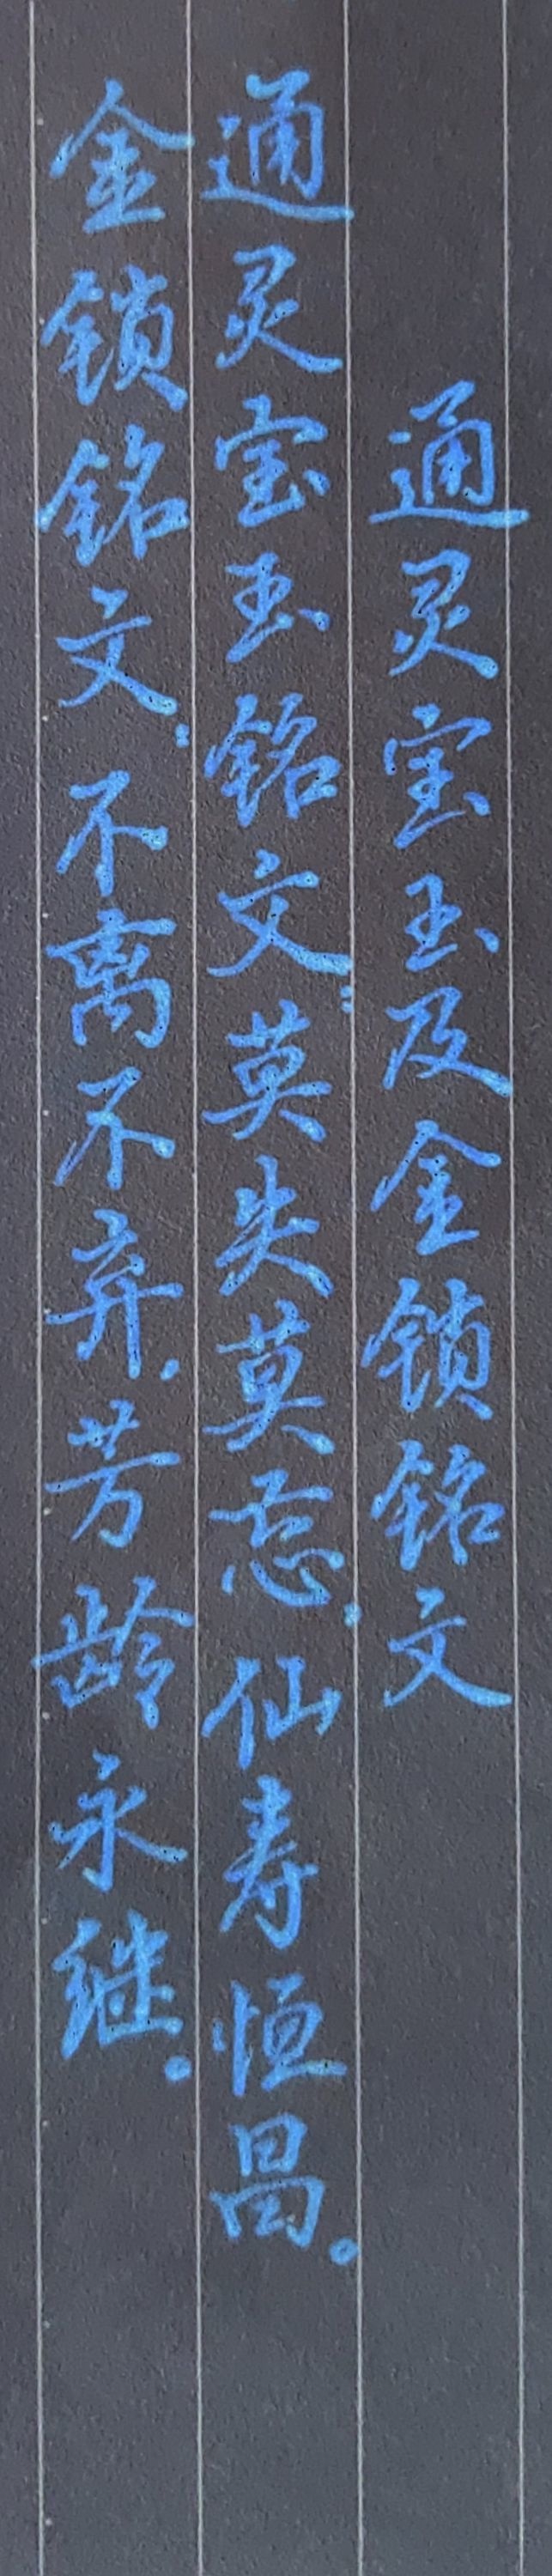 通灵宝玉及金锁铭文
通灵宝玉铭文:莫失莫忘,仙寿恒昌。
金锁铭文:不离不弃,芳龄永继。